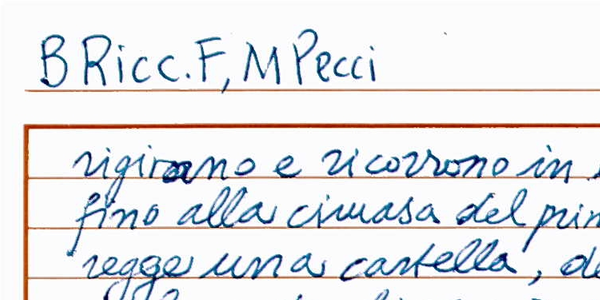 B Ricc. F, M Pecci
rigirano e ricorrono in
fino alla cimasa del prim
regge una cartella, de